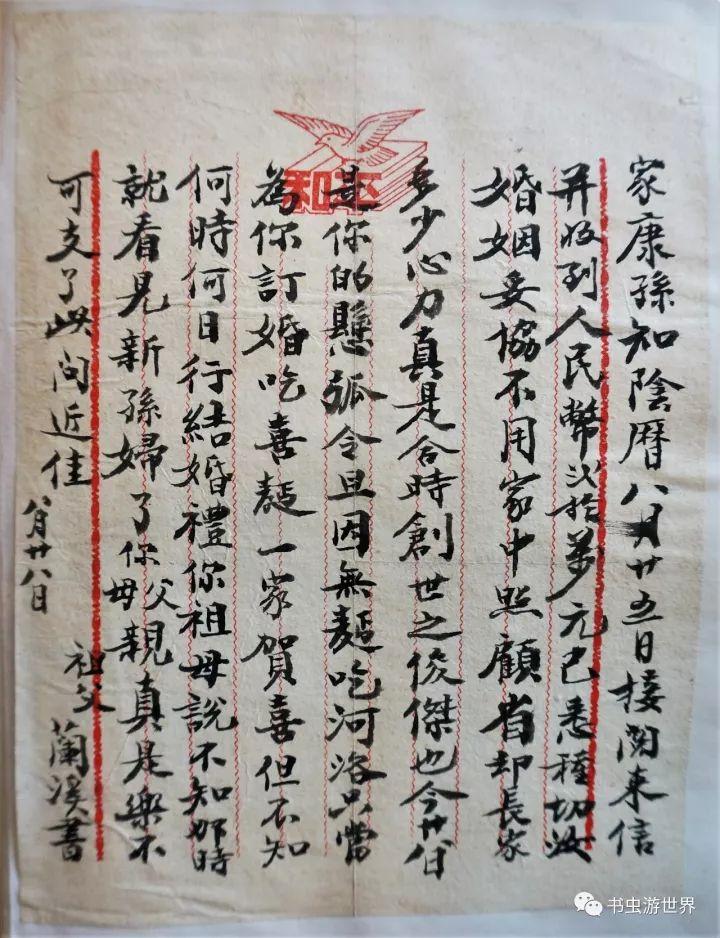 和平
家康孫知陰曆八月廿五日接閱來信
并收到人民幣貳拾萬元已悉種切汝
婚姻妥協不用家中照顧省却長家
多少心力真是合時創世之俊傑也今廿八日
是你的懸弧令旦因無麵吃河洛只當
為你訂婚吃喜麵一家賀喜但不知
何時何日行結婚禮你祖母說不知那時
就看見新孫婦了你父母親真是樂不
可支了此問近佳
祖父 蘭溪書
八月廿八日
书虫游世界